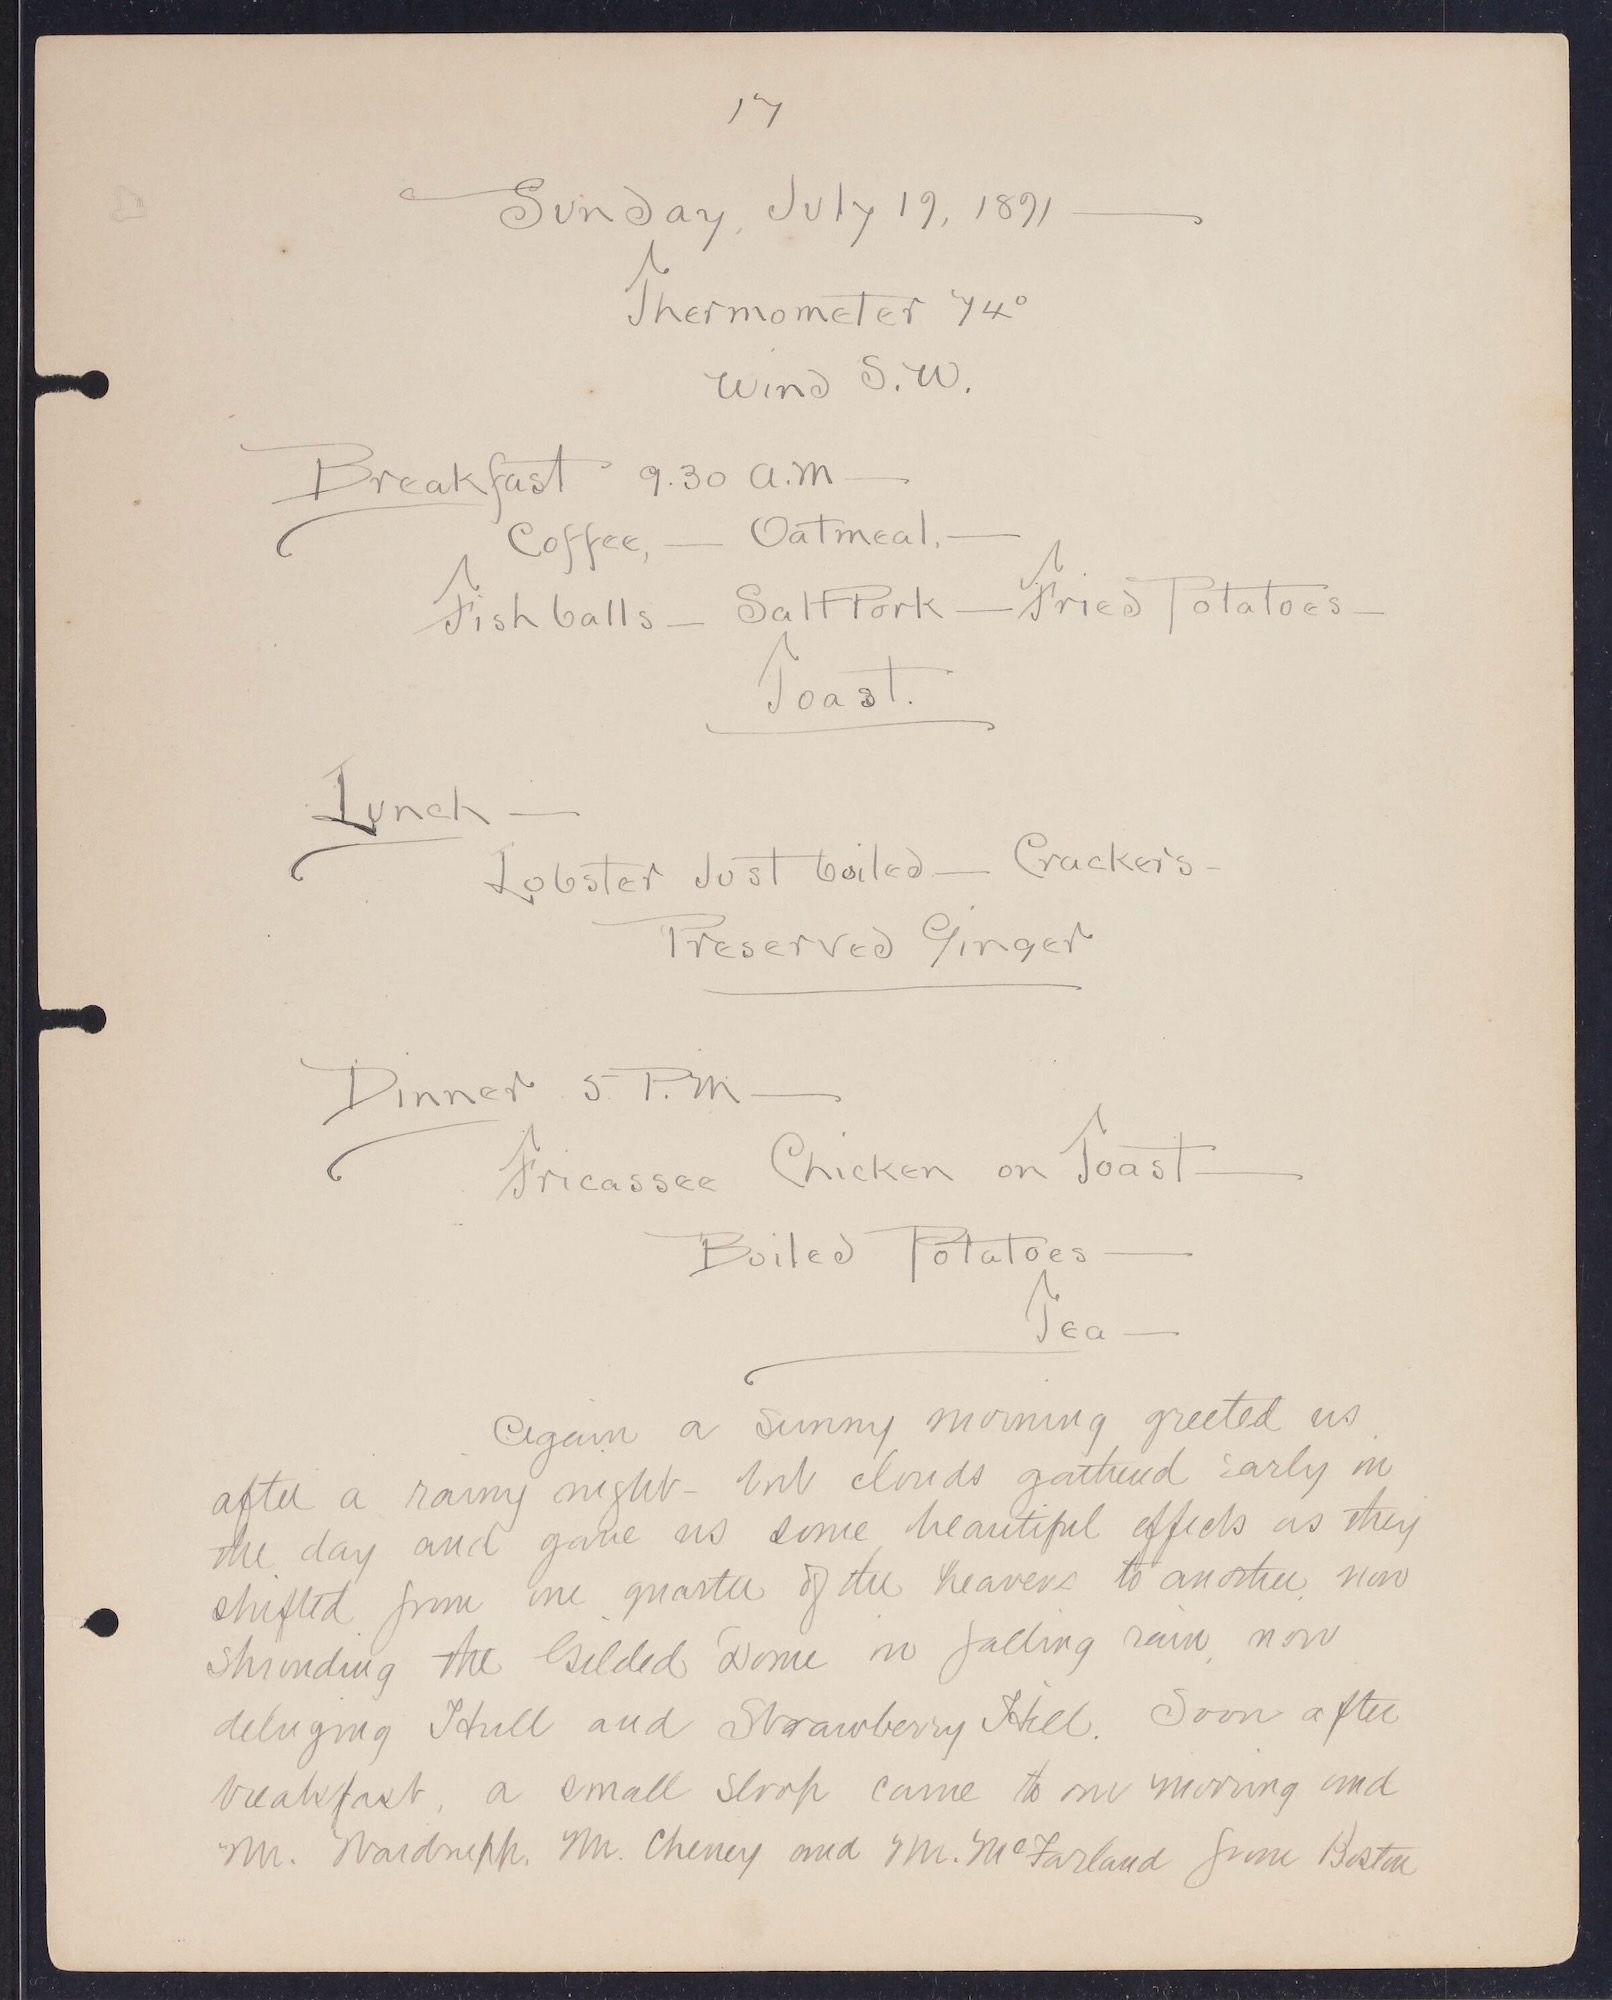 17
Sunday, July 19, 1891 —
Thermometer 74°
Wind S.W.
Breakfast 9.30 A.M —
Coffee, — Oatmeal, —
Fish balls — Salt Pork — Fried Potatoes —
Toast.
Lunch —
Lobster Just boiled — Crackers -
Preserved Ginger
Dinner 5 P.M —
Fricassee Chicken on Toast —
Boiled Potatoes —
Tea —
Again a sunny morning greeted us
after a rainy night - but clouds gathered early in
the day and gave us some beautiful effects as they
shifted from one quarter of the heavens to another, now
shrouding the Gilded Dome in falling rain, now
deluging Hull and Strawberry Hill. Soon after
breakfast, a small sloop came to our mooring and
Mr. Mr. Cheney and Mr. McFarland from Boston